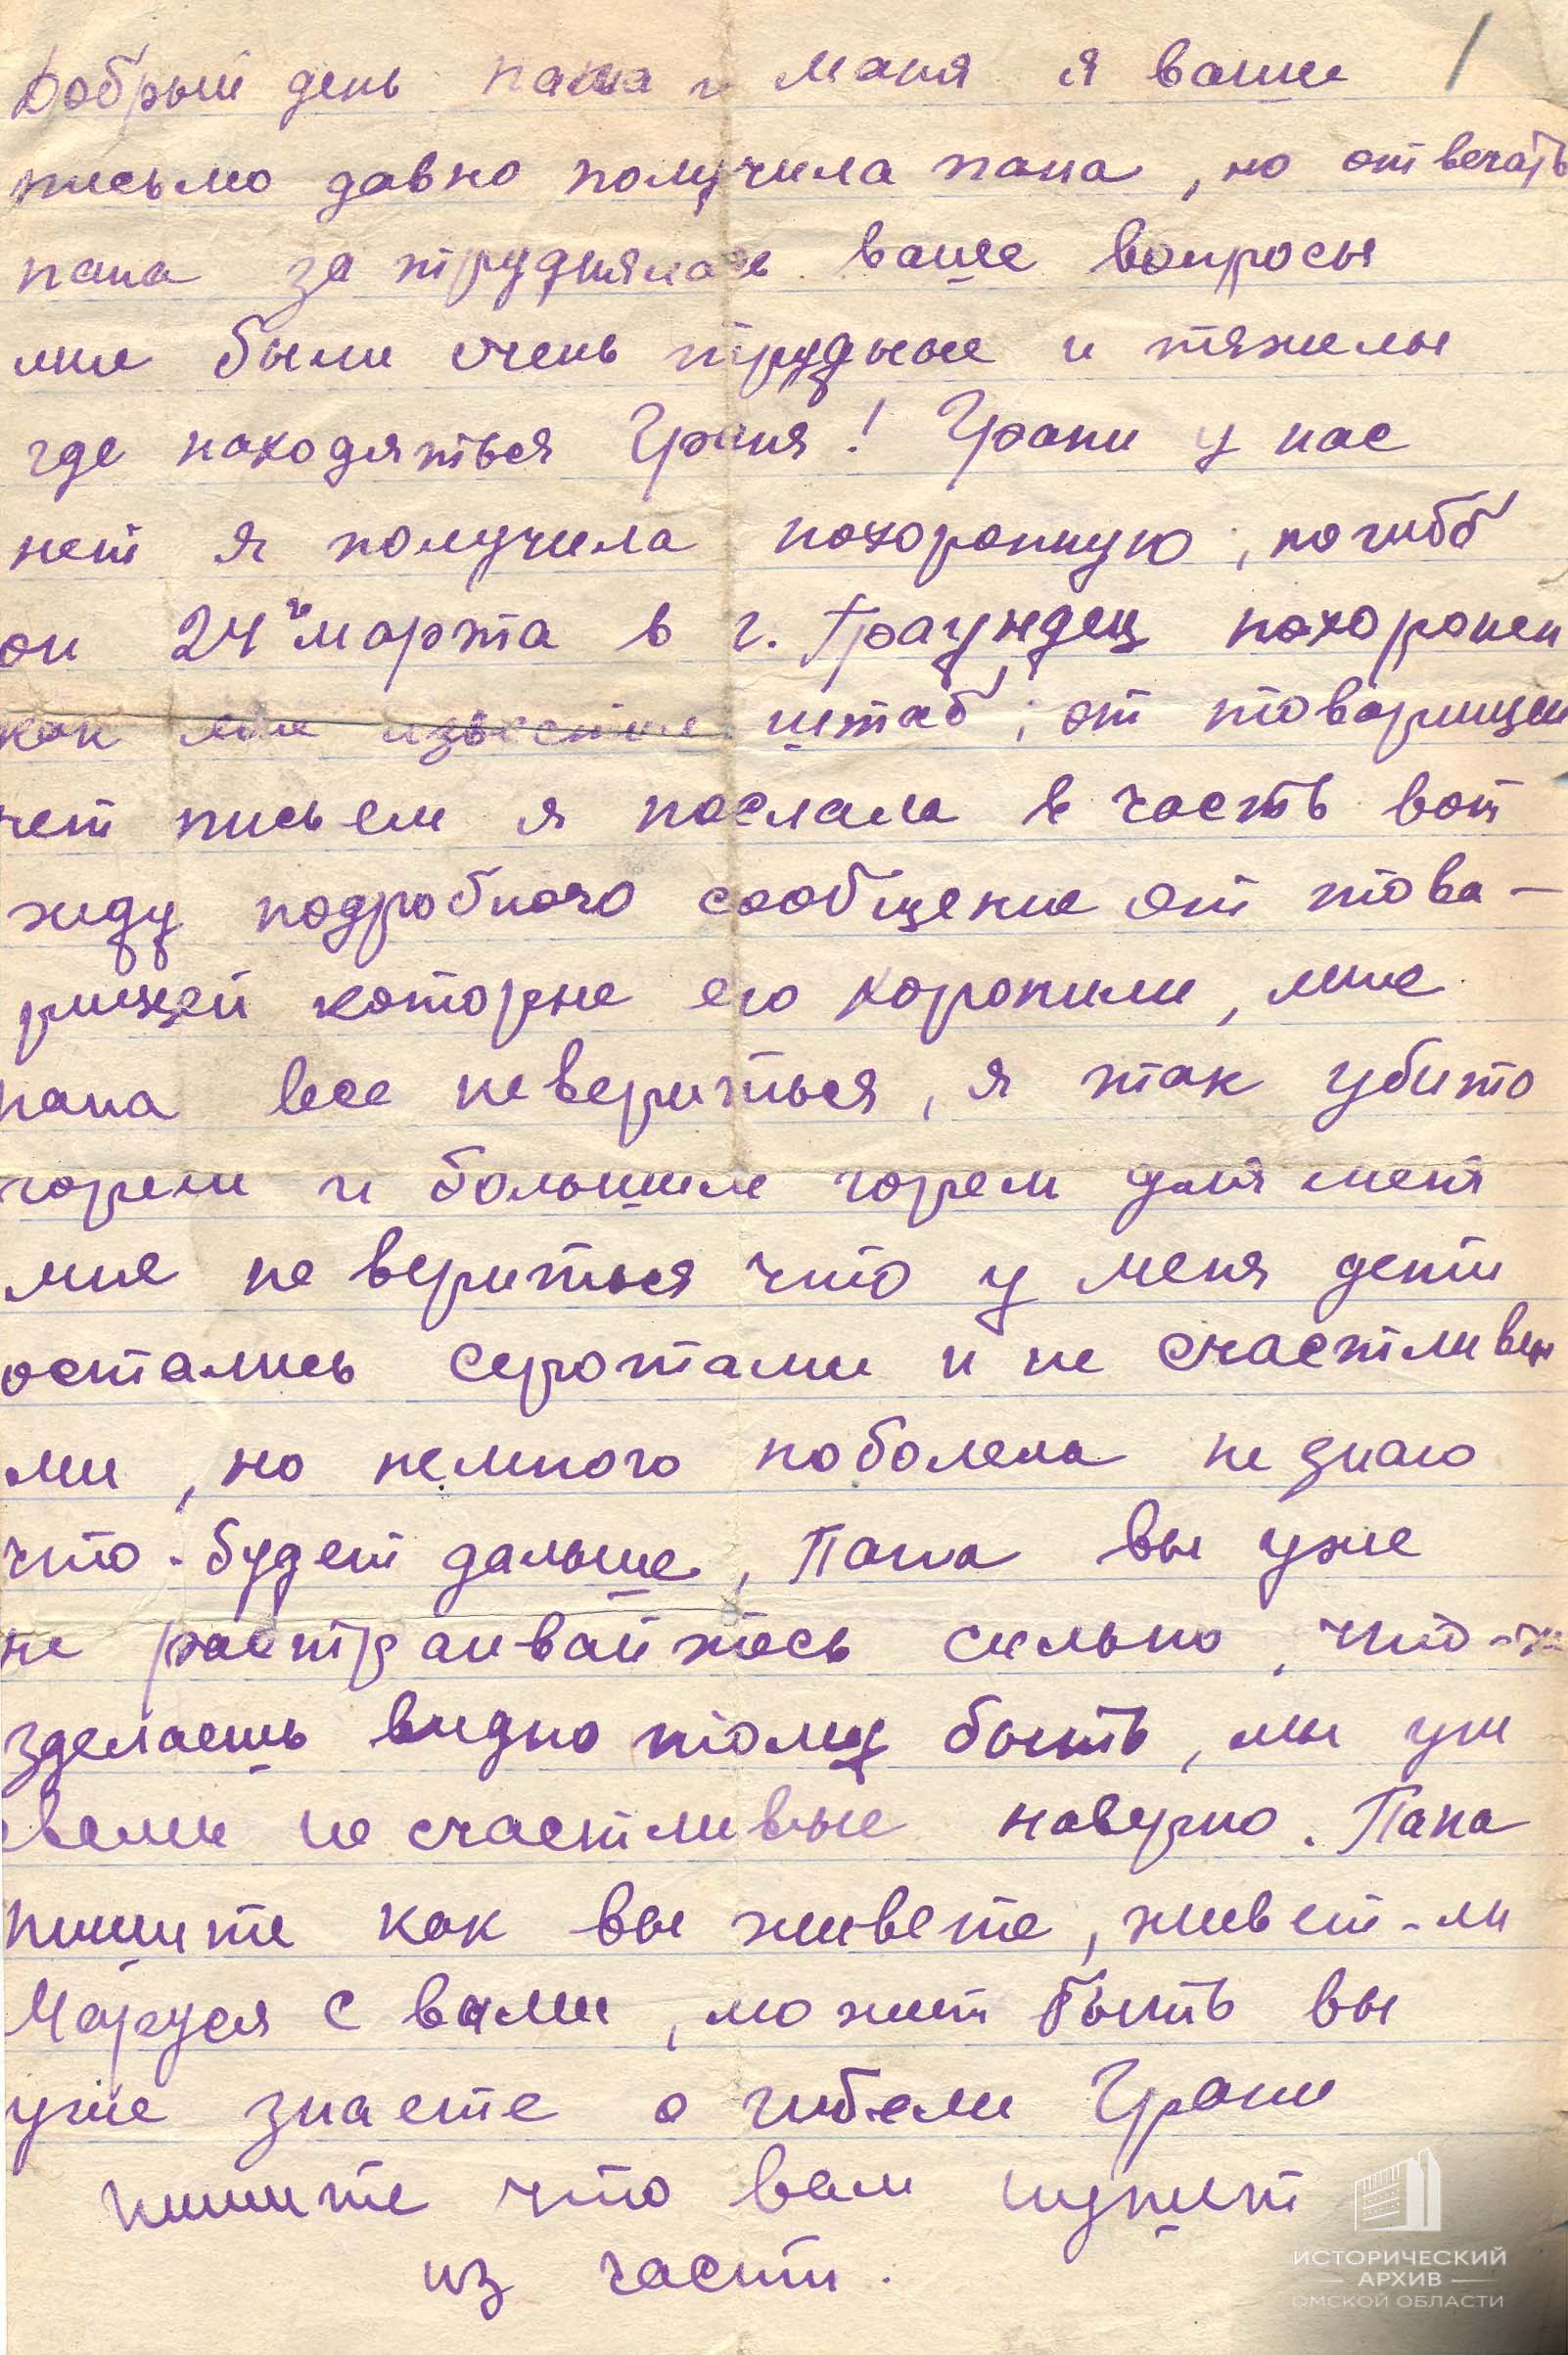 Добрый день папа и маня я ваше
письмо давно получила папа, но отвечать
папа за трудняюсь ваше вопросы
мне были очень трудные и тяжелы
где находяться Граня! Грани у нас
нет я получила похоронную, погибб
он 24го марта в г. Граундец похоронен
как мне известие штаб, от товарищей
нет писем я послала в часть вот
жду подробного сообщение от това-
рищей которые его хоронили, мне
папа все невериться, я так убито
горем и большим горем для меня
мне не вериться что у меня дети
остались серотами и не счастливы
ми, но немного поболела не знаю
что будет дальше, Папа вы уже
не растраивайтесь сильно, что-ж
зделаешь видно тому быть, мы уж
свами не счастливые наверно. Папа
пишите как вы живете, живет-ли
Маруся с вами, может быть вы
уже знаете о гибели Грани
пишите что вам
из части.
1
ИСТОРИЧЕСКИЙ
АРХИВ
ОМСКОЙ ОБЛАСТИ